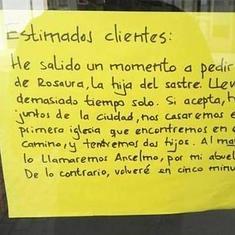 Estimados clientes:
He salido un momento a pedir
de Rosaura, la hija del sastre.
demasiado tiempo solo. Si acepta,
juntos de la ciudad, nos casaremos e
primera iglesia que encontremos en e
camino, y tendremos dos hijos. Al ma
lo llamaremos Anselmo, por mi abuel
De lo contrario, volveré en cinco minu